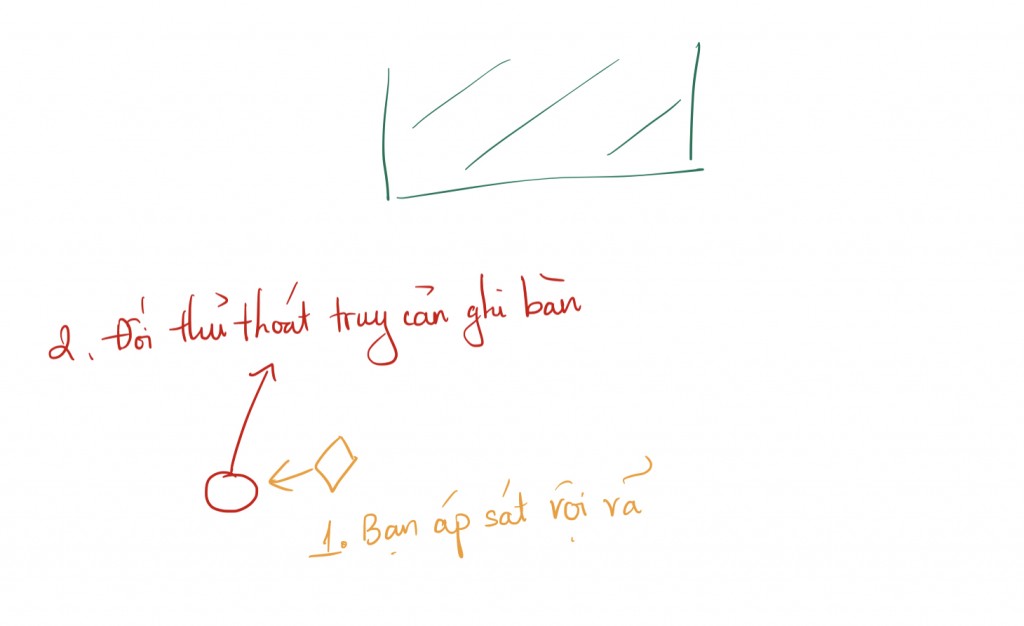 2. Đối thủ thoát truy cản ghi bàn
1. Bạn áp sát vội vã